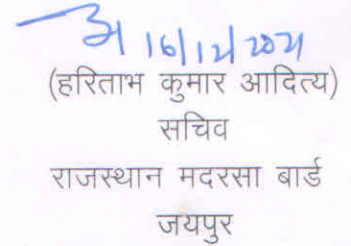 अ 16/12/2021
(हरिताभ कुमार आदित्य)
सचिव
राजस्थान मदरसा बार्ड
जयपुर